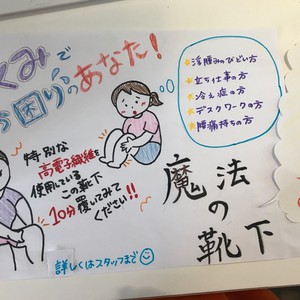 くみで
お困りのあなた!
浮腫みのひどい方
立ち仕事の方
冷え症の方
デスクワークの方
腰痛持ちの方
特別な
高電子繊維を
使用している
この靴下
10分履いてみて
ください!!
魔法
の
靴下
詳しくはスタッフまで